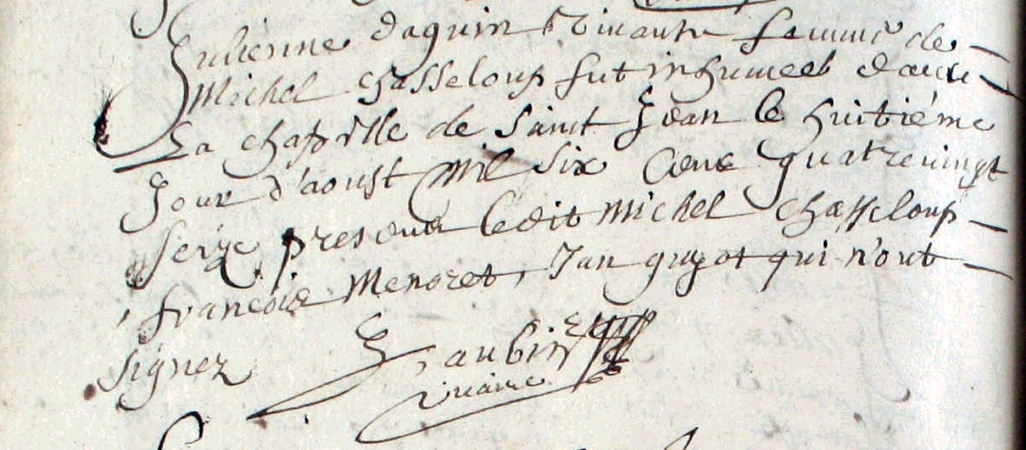 Julienne daguin vivante femme de
Michel Chasseloup fut inhumeé dans
La chapelle de Saint Jean le huitiéme
Jour d'aoust mil six cens quatrevingt
seize presens ledit Michel Chasseloup
, françois Menoret, Jan guyot qui n'ont
signez
J, aubin
vicaire